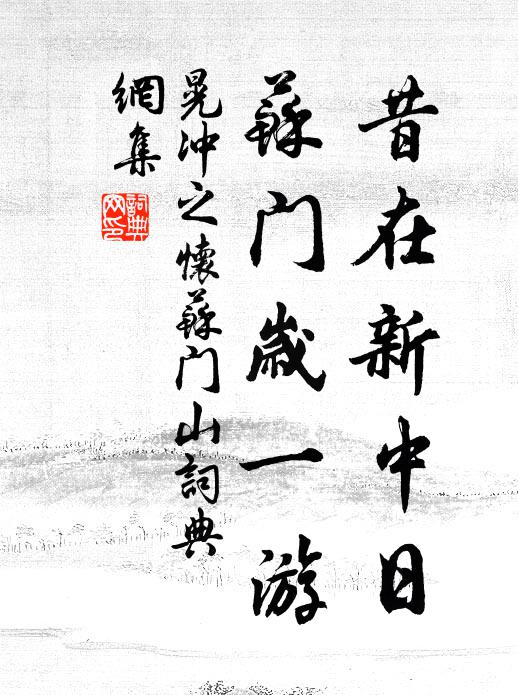 昔在新中日
蘇門歲一游
晁沖之懷蘇門山詞典
網集
詞典
网印